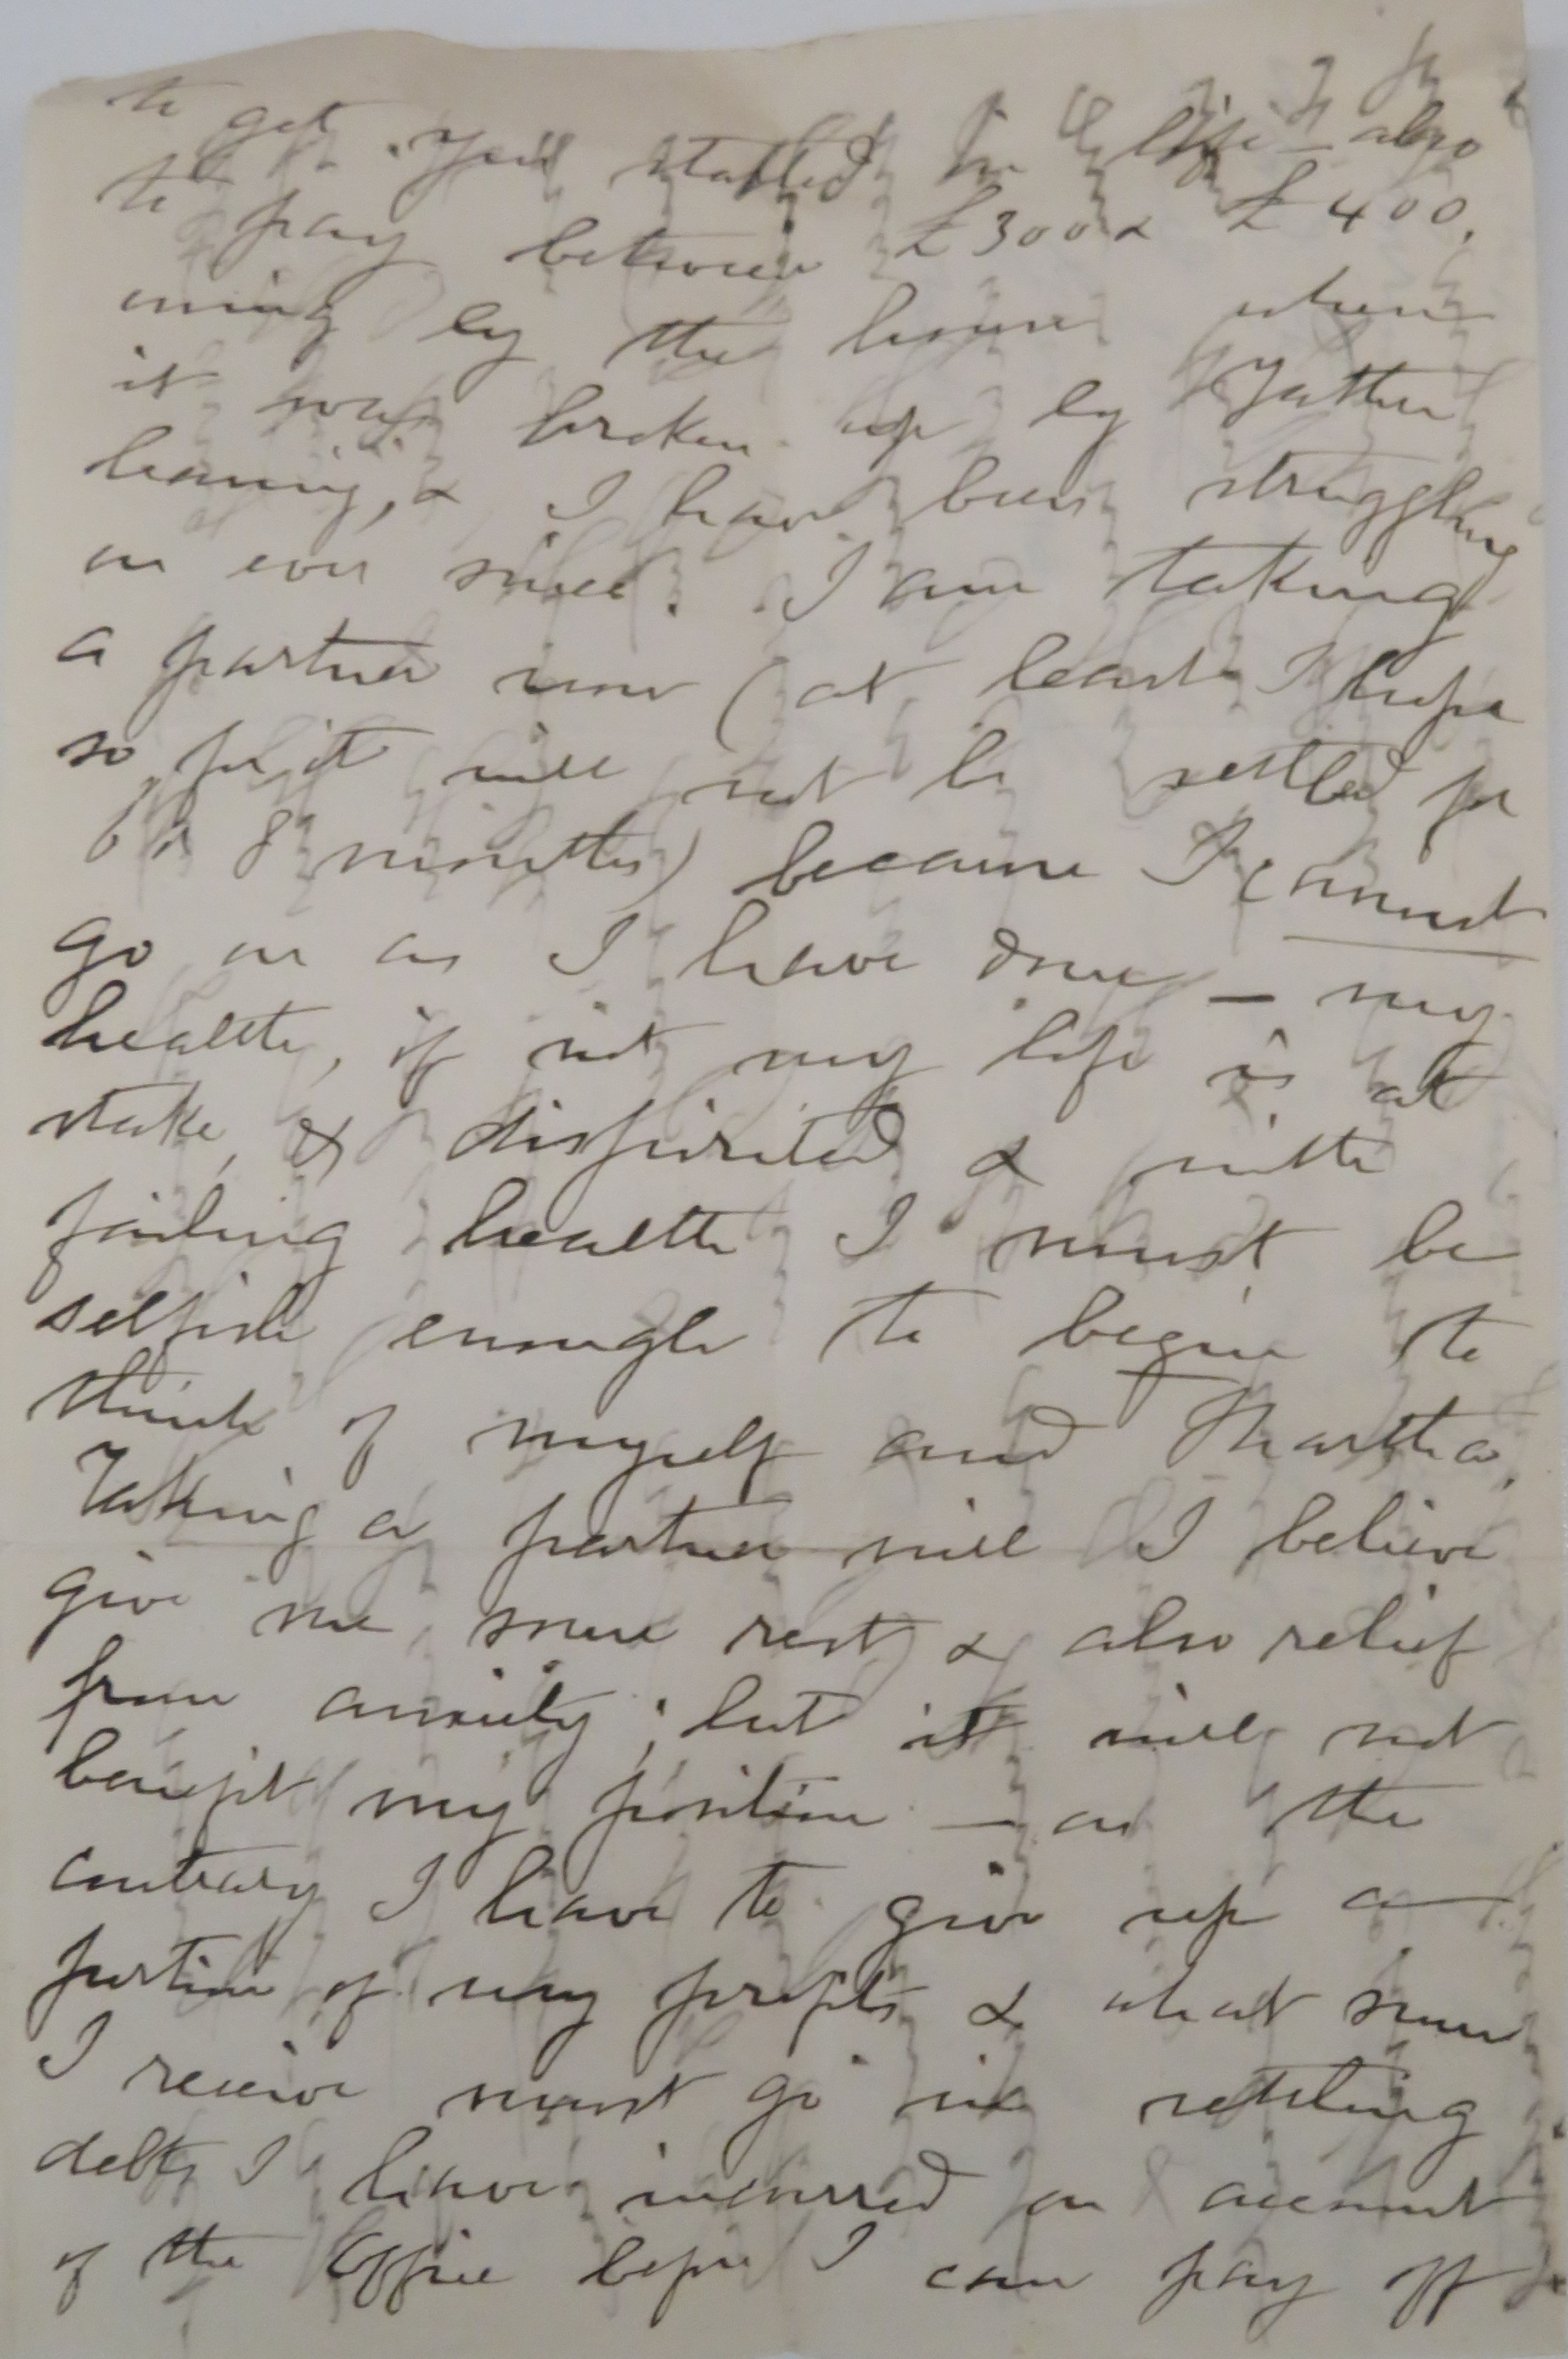 to get you started in life – also
to pay between £300 & £400,
owing by the house when
it was broken up by Father
leaving, & I have been struggling
on ever since. I am taking
a partner now (at least I hope
so, for it will not be settled for
6 or 8 months) because I cannot
go on as I have done – my
health, if not my life is at
stake, & dispirited & with
failing health I must be
selfish enough to begin to
think of myself and Martha.
Taking a partner will I believe
give me more rest & also relief
from anxiety; but it will not
benefit my position – on the
contrary I have to give up a
portion of my profits & what sum
I receive must go in settling
debts I have incurred on account
of the Office before I can pay off